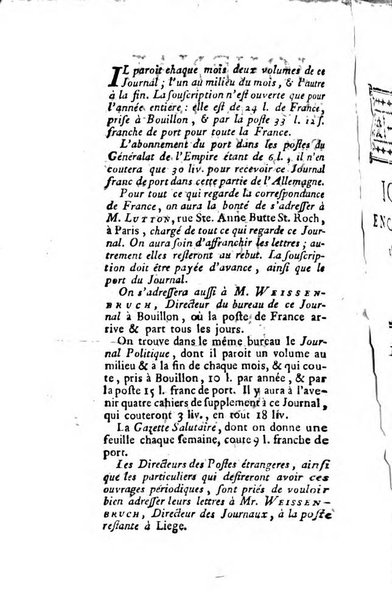 IL paroit chaque mois deux volumes de ce
Journal ; l'un au milieu du mois, & l'autre
à la fin. La souscription n'est ouverte que pour
l'année entiere : elle est de 24 l. de France,
prise à Bouillon, & par la poste 33 l. 12 s.
franche de port pour toute la France.
L'abonnement du port dans les postes du
Généralat de l'Empire étant de 6 l., il n'en
coutera que 30 liv. pour recevoir ce Journal
franc de port dans cette partie de l'Allemagne.
Pour tout ce qui regarde la correspondance
de France, on aura la bonté de s'adresser à
M. LUTTON, rue Ste. Anne Butte St. Roch,
à Paris, chargé de tout ce qui regarde ce Jour-
nal. On aura soin d'affranchir les lettres ; au-
trement elles resteront au rebut. La souscrip-
tion doit être payée d'avance, ainsi que le
port du Journal.
On s'adressera aussi à M. WEISSEN-
BRUCH, Directeur du bureau de ce Jour-
nal à Bouillon, où la poste de France ar-
rive & part tous les jours.
On trouve dans le même bureau le Jour-
nal Politique, dont il paroit un volume au
milieu & à la fin de chaque mois, & qui cou-
te, pris à Bouillon, 10 l. par année, & par
la poste 15 l. franc de port. Il y aura à l'ave-
nir quatre cahiers de supplement à ce Journal,
qui couteront 3 liv., en tout 18 liv.
La Gazette Salutaire, dont on donne une
feuille chaque semaine, coute 9 l. franche de
port.
Les Directeurs des Postes étrangeres, ainsi
que les particuliers qui desireront avoir ces
ouvrages périodiques, sont priés de vouloir
bien adresser leurs lettres à Mr. WEISSEN-
BRUCH, Directeur des Journaux, à la poste
restante à Liege.